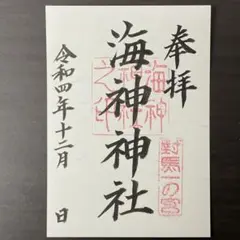 奉拝
對馬一の宮
海神神社
海神神社之印
令和四年十二月 日